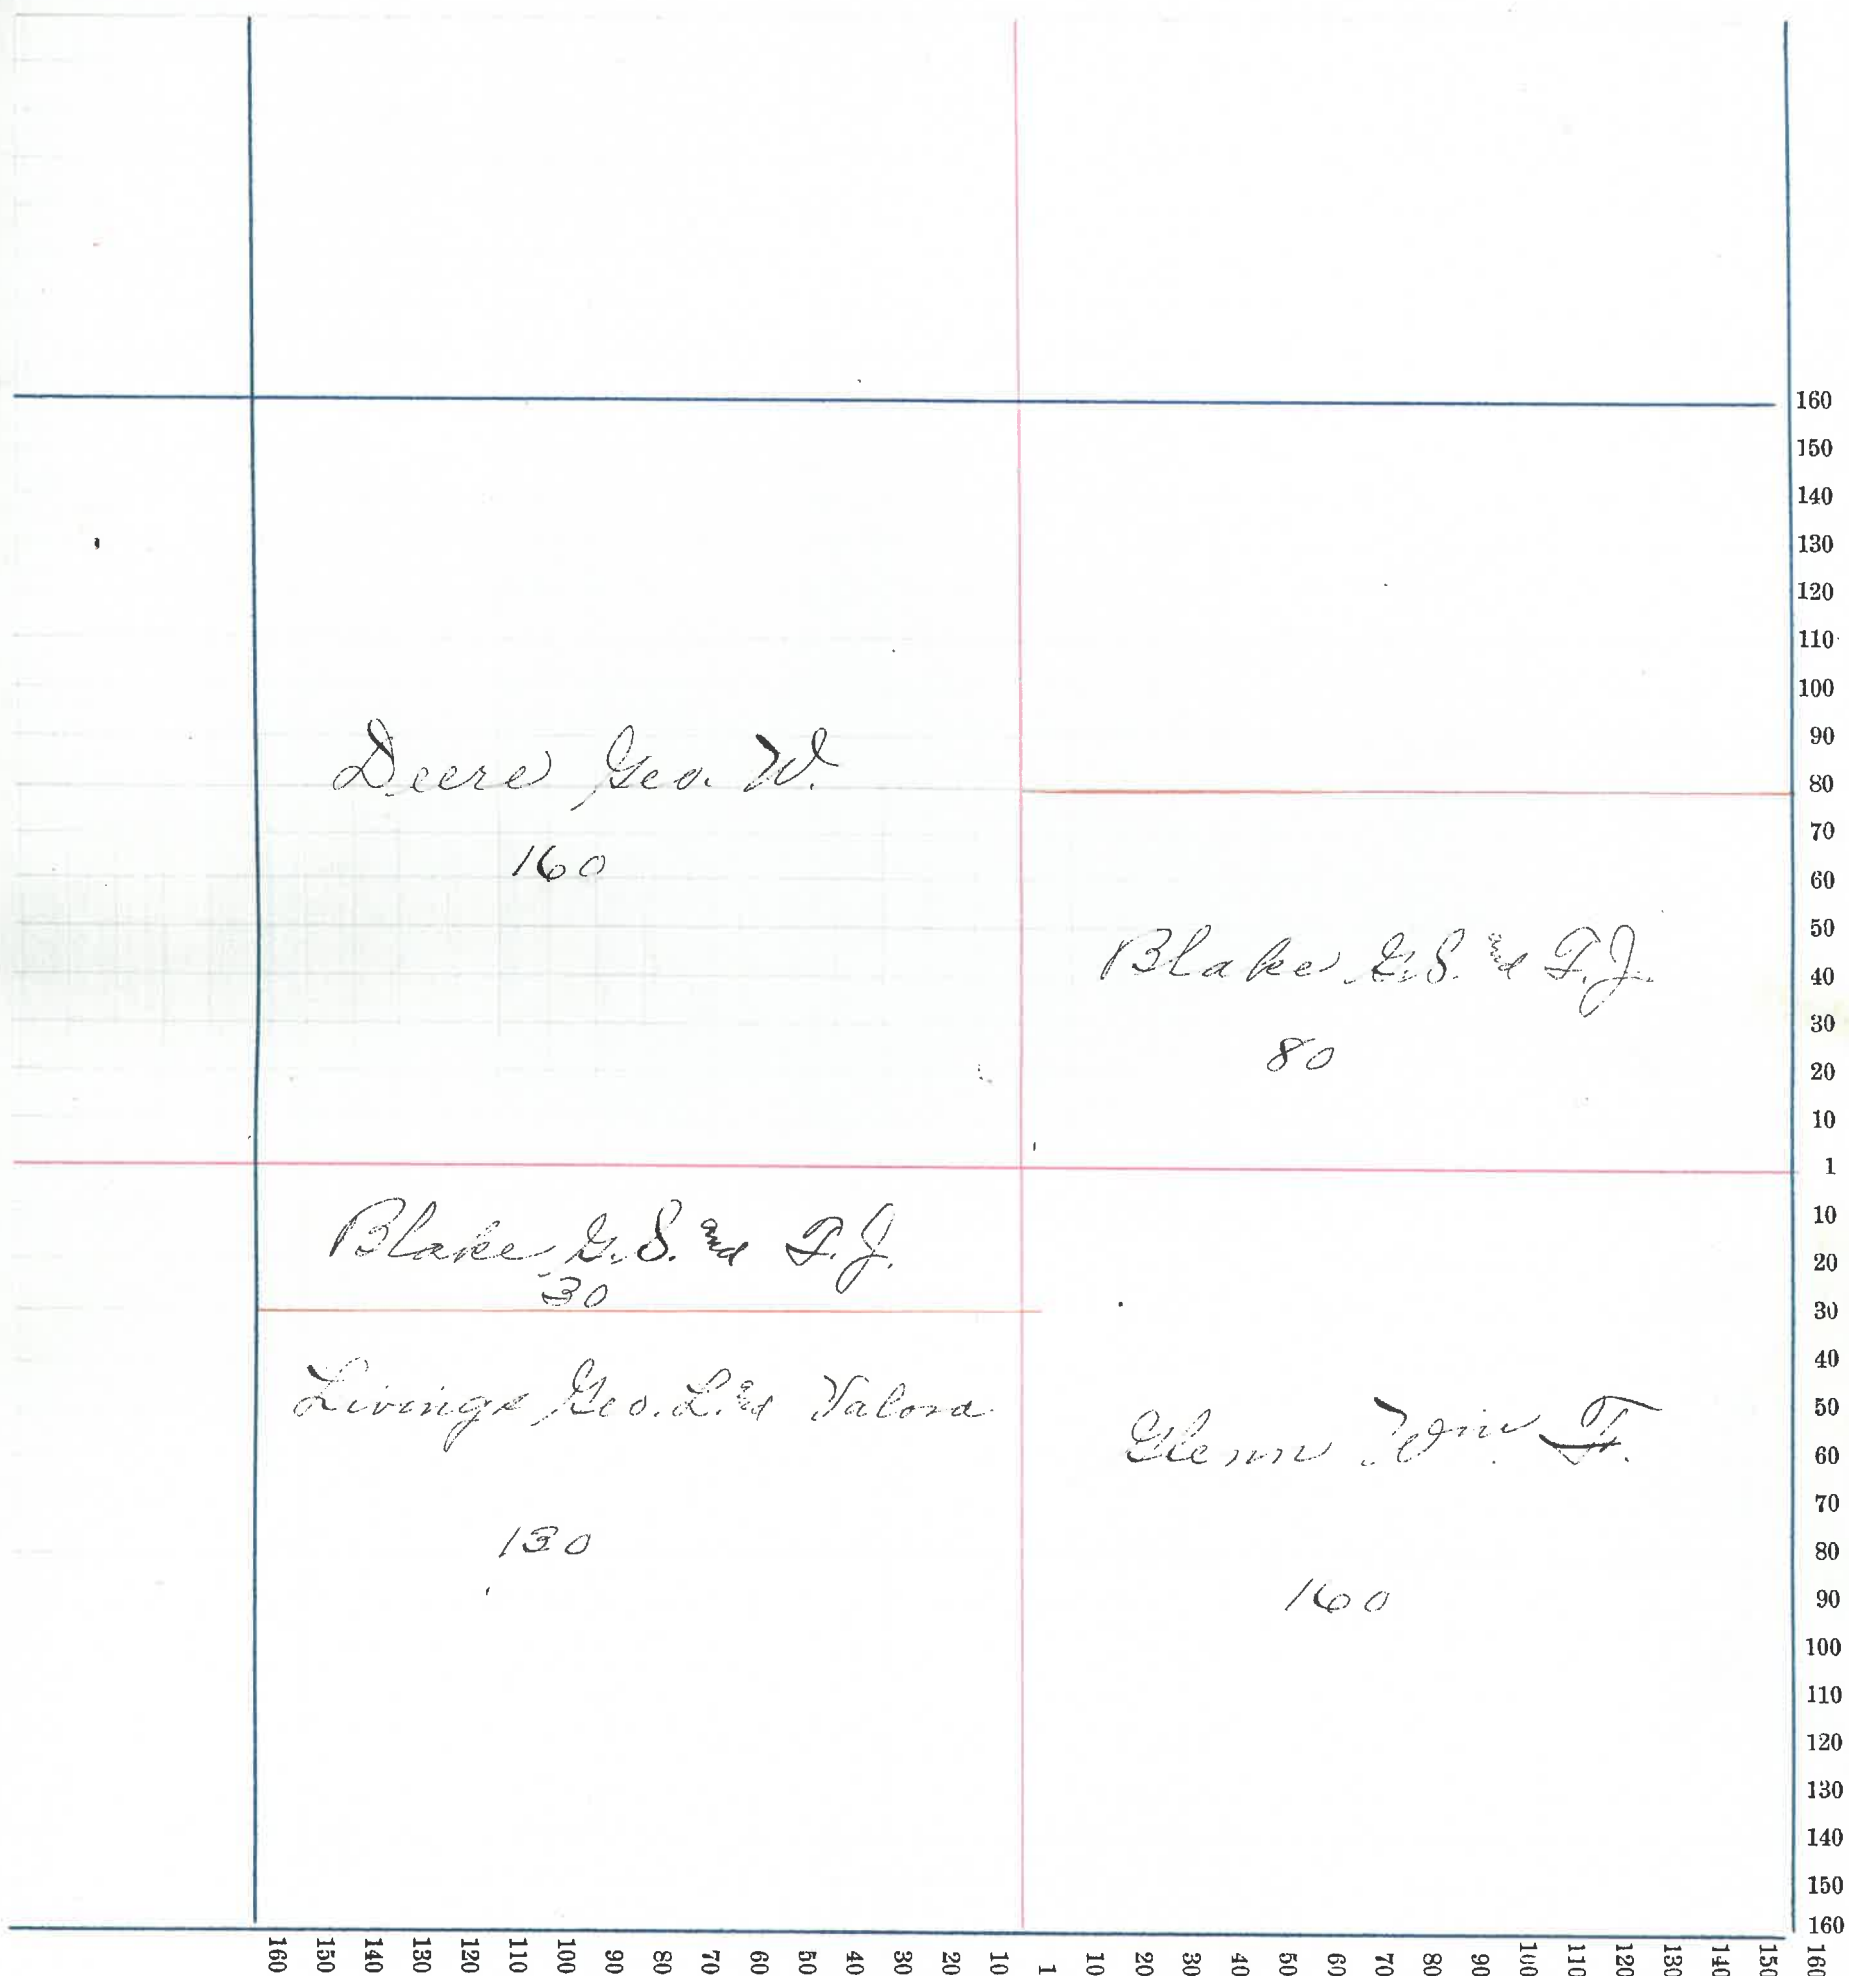 Deere Geo. W.
160
Blake G.S. and T.J.
80
Blake G.S. and T.J.
30
Livings Geo. L. and Valora
130
Glenn Wm F.
160
160
150
140
130
120
110
100
90
80
70
60
50
40
30
20
10
1
10
20
30
40
50
60
70
80
90
100
110
120
130
140
150
160
160 150 140 130 120 110 100 90 80 70 60 50 40 30 20 10 1 10 20 30 40 50 60 70 80 90 100 110 120 130 140 150 160